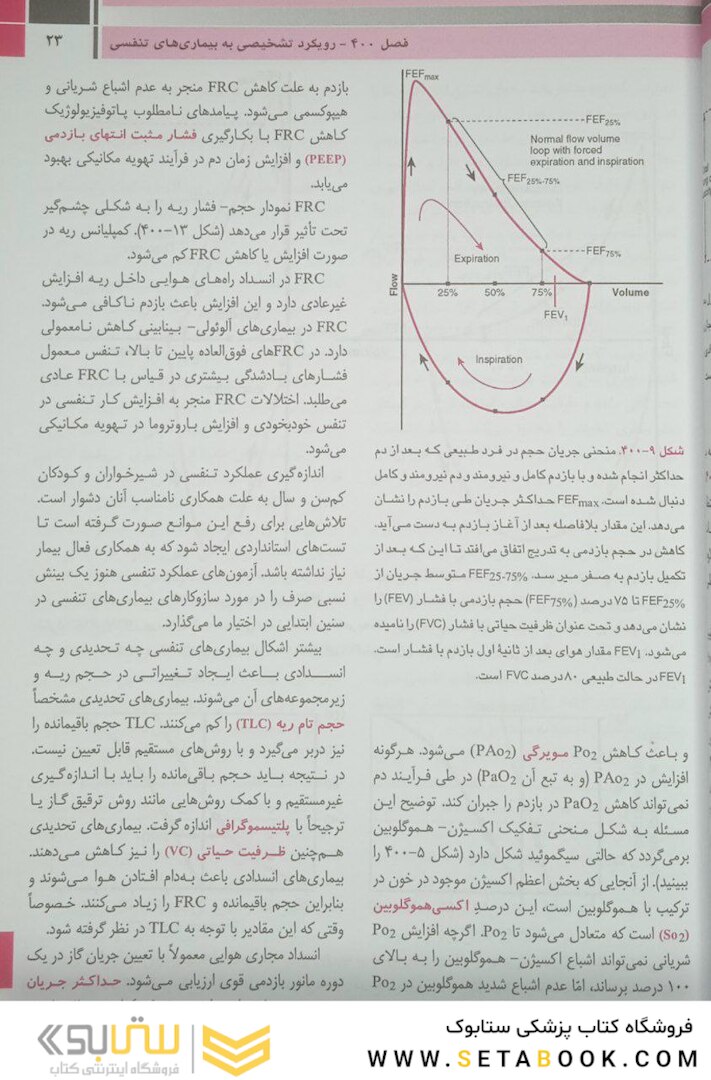 ۲۳
فصل ۴۰۰ - رویکرد تشخیصی به بیماری‌های تنفسی
FEFmax
FEF25%
Normal flow volume
loop with forced
expiration and inspiration
FEF25%-75%
Expiration
FEF75%
Flow
25% 50% 75% Volume
FEV1
Inspiration
شکل ۹-۴۰۰. منحنی جریان حجم در فرد طبیعی که بعد از دم
حداکثر انجام شده و با بازدم کامل و نیرومند و دم نیرومند و کامل
دنبال شده است. FEFmax حداکثر جریان طی بازدم را نشان
می‌دهد. این مقدار بلافاصله بعد از آغاز بازدم به دست می‌آید.
کاهش در حجم بازدمی به تدریج اتفاق می‌افتد تا این که بعد از
تکمیل بازدم به صفر می‌رسد. FEF25-75% متوسط جریان از
FEF25% تا ۷۵ درصد (FEF75%) حجم بازدمی با فشار (FEV) را
نشان می‌دهد و تحت عنوان ظرفیت حیاتی با فشار (FVC) را نامیده
می‌شود. FEV1 مقدار هوای بعد از ثانیهٔ اول بازدم با فشار است.
FEV1 در حالت طبیعی ۸۰ درصد FVC است.
و باعث کاهش Po2 مویرگی (PAo2) می‌شود. هرگونه
افزایش در PAo2 (و به تبع آن PaO2) در طی فرآیند دم
نمی‌تواند کاهش PaO2 در بازدم را جبران کند. توضیح این
مسئله به شکل منحنی تفکیک اکسیژن- هموگلوبین
برمی‌گردد که حالتی سیگموئید شکل دارد (شکل ۵-۴۰۰ را
ببینید). از آنجایی که بخش اعظم اکسیژن موجود در خون در
ترکیب با هموگلوبین است، این درصدِ اکسی‌هموگلوبین
(So2) است که متعادل می‌شود تا Po2. اگرچه افزایش Po2
شریانی نمی‌تواند اشباع اکسیژن- هموگلوبین را به بالای
۱۰۰ درصد برساند، امّا عدم اشباع شدید هموگلوبین در Po2
بازدم به علت کاهش FRC منجر به عدم اشباع شریانی و
هیپوکسمی می‌شود. پیامدهای نامطلوب پاتوفیزیولوژیک
کاهش FRC با بکارگیری فشار مثبت انتهای بازدمی
(PEEP) و افزایش زمان دم در فرآیند تهویه مکانیکی بهبود
می‌یابد.
FRC نمودار حجم- فشار ریه را به شکلی چشم‌گیر
تحت تأثیر قرار می‌دهد (شکل ۱۳-۴۰۰). کمپلیانس ریه در
صورت افزایش یا کاهش FRC کم می‌شود.
FRC در انسداد راه‌های هوایی داخل ریه افزایش
غیرعادی دارد و این افزایش باعث بازدم ناکافی می‌شود.
FRC در بیماری‌های آلوئولی- بینابینی کاهش نامعمولی
دارد. در FRCهای فوق‌العاده پایین تا بالا، تنفس معمول
فشارهای بادشدگی بیشتری در قیاس با FRC عادی
می‌طلبد. اختلالات FRC منجر به افزایش کار تنفسی در
تنفس خودبخودی و افزایش باروتروما در تهویه مکانیکی
می‌شود.
اندازه‌گیری عملکرد تنفسی در شیرخواران و کودکان
کم‌سن و سال به علت همکاری نامناسب آنان دشوار است.
تلاش‌هایی برای رفع این موانع صورت گرفته است تا
تست‌های استانداردی ایجاد شود که به همکاری فعال بیمار
نیاز نداشته باشد. آزمون‌های عملکرد تنفسی هنوز یک بینش
نسبی صرف را در مورد سازوکارهای بیماری‌های تنفسی در
سنین ابتدایی در اختیار ما می‌گذارد.
بیشتر اشکال بیماری‌های تنفسی چه تحدیدی و چه
انسدادی باعث ایجاد تغییراتی در حجم ریه و
زیرمجموعه‌های آن می‌شوند. بیماری‌های تحدیدی مشخصاً
حجم تام ریه (TLC) را کم می‌کنند. TLC حجم باقیمانده را
نیز دربر می‌گیرد و با روش‌های مستقیم قابل تعیین نیست.
در نتیجه باید حجم باقی‌مانده را باید با اندازه‌گیری
غیرمستقیم و با کمک روش‌هایی مانند روش ترقیق گاز یا
ترجیحاً با پلتیسموگرافی اندازه گرفت. بیماری‌های تحدیدی
هم‌چنین ظرفیت حیاتی (VC) را نیز کاهش می‌دهند.
بیماری‌های انسدادی باعث به‌دام افتادن هوا می‌شوند و
بنابراین حجم باقیمانده و FRC را زیاد می‌کنند. خصوصاً
وقتی که این مقادیر با توجه به TLC در نظر گرفته شود.
انسداد مجاری هوایی معمولاً با تعیین جریان گاز در یک
دوره مانور بازدمی قوی ارزیابی می‌شود. حداکثر جریان
فروشگاه کتاب پزشکی ستابوک
WWW.SETABOOK.COM
ستابوک
فروشگاه اینترنتی کتاب